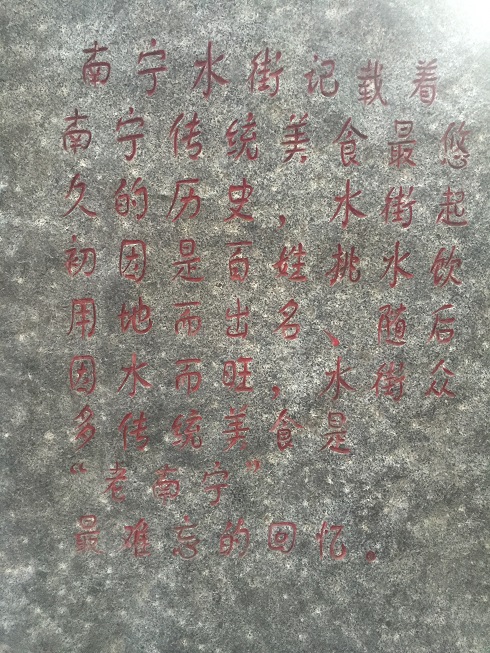 南宁水街记载着
南宁传统美食最悠
久的历史，水街起
初因是百姓挑水饮
用地而出名、随后
因水而旺，水街众
多传统美食是
“老南宁”
最难忘的回忆。